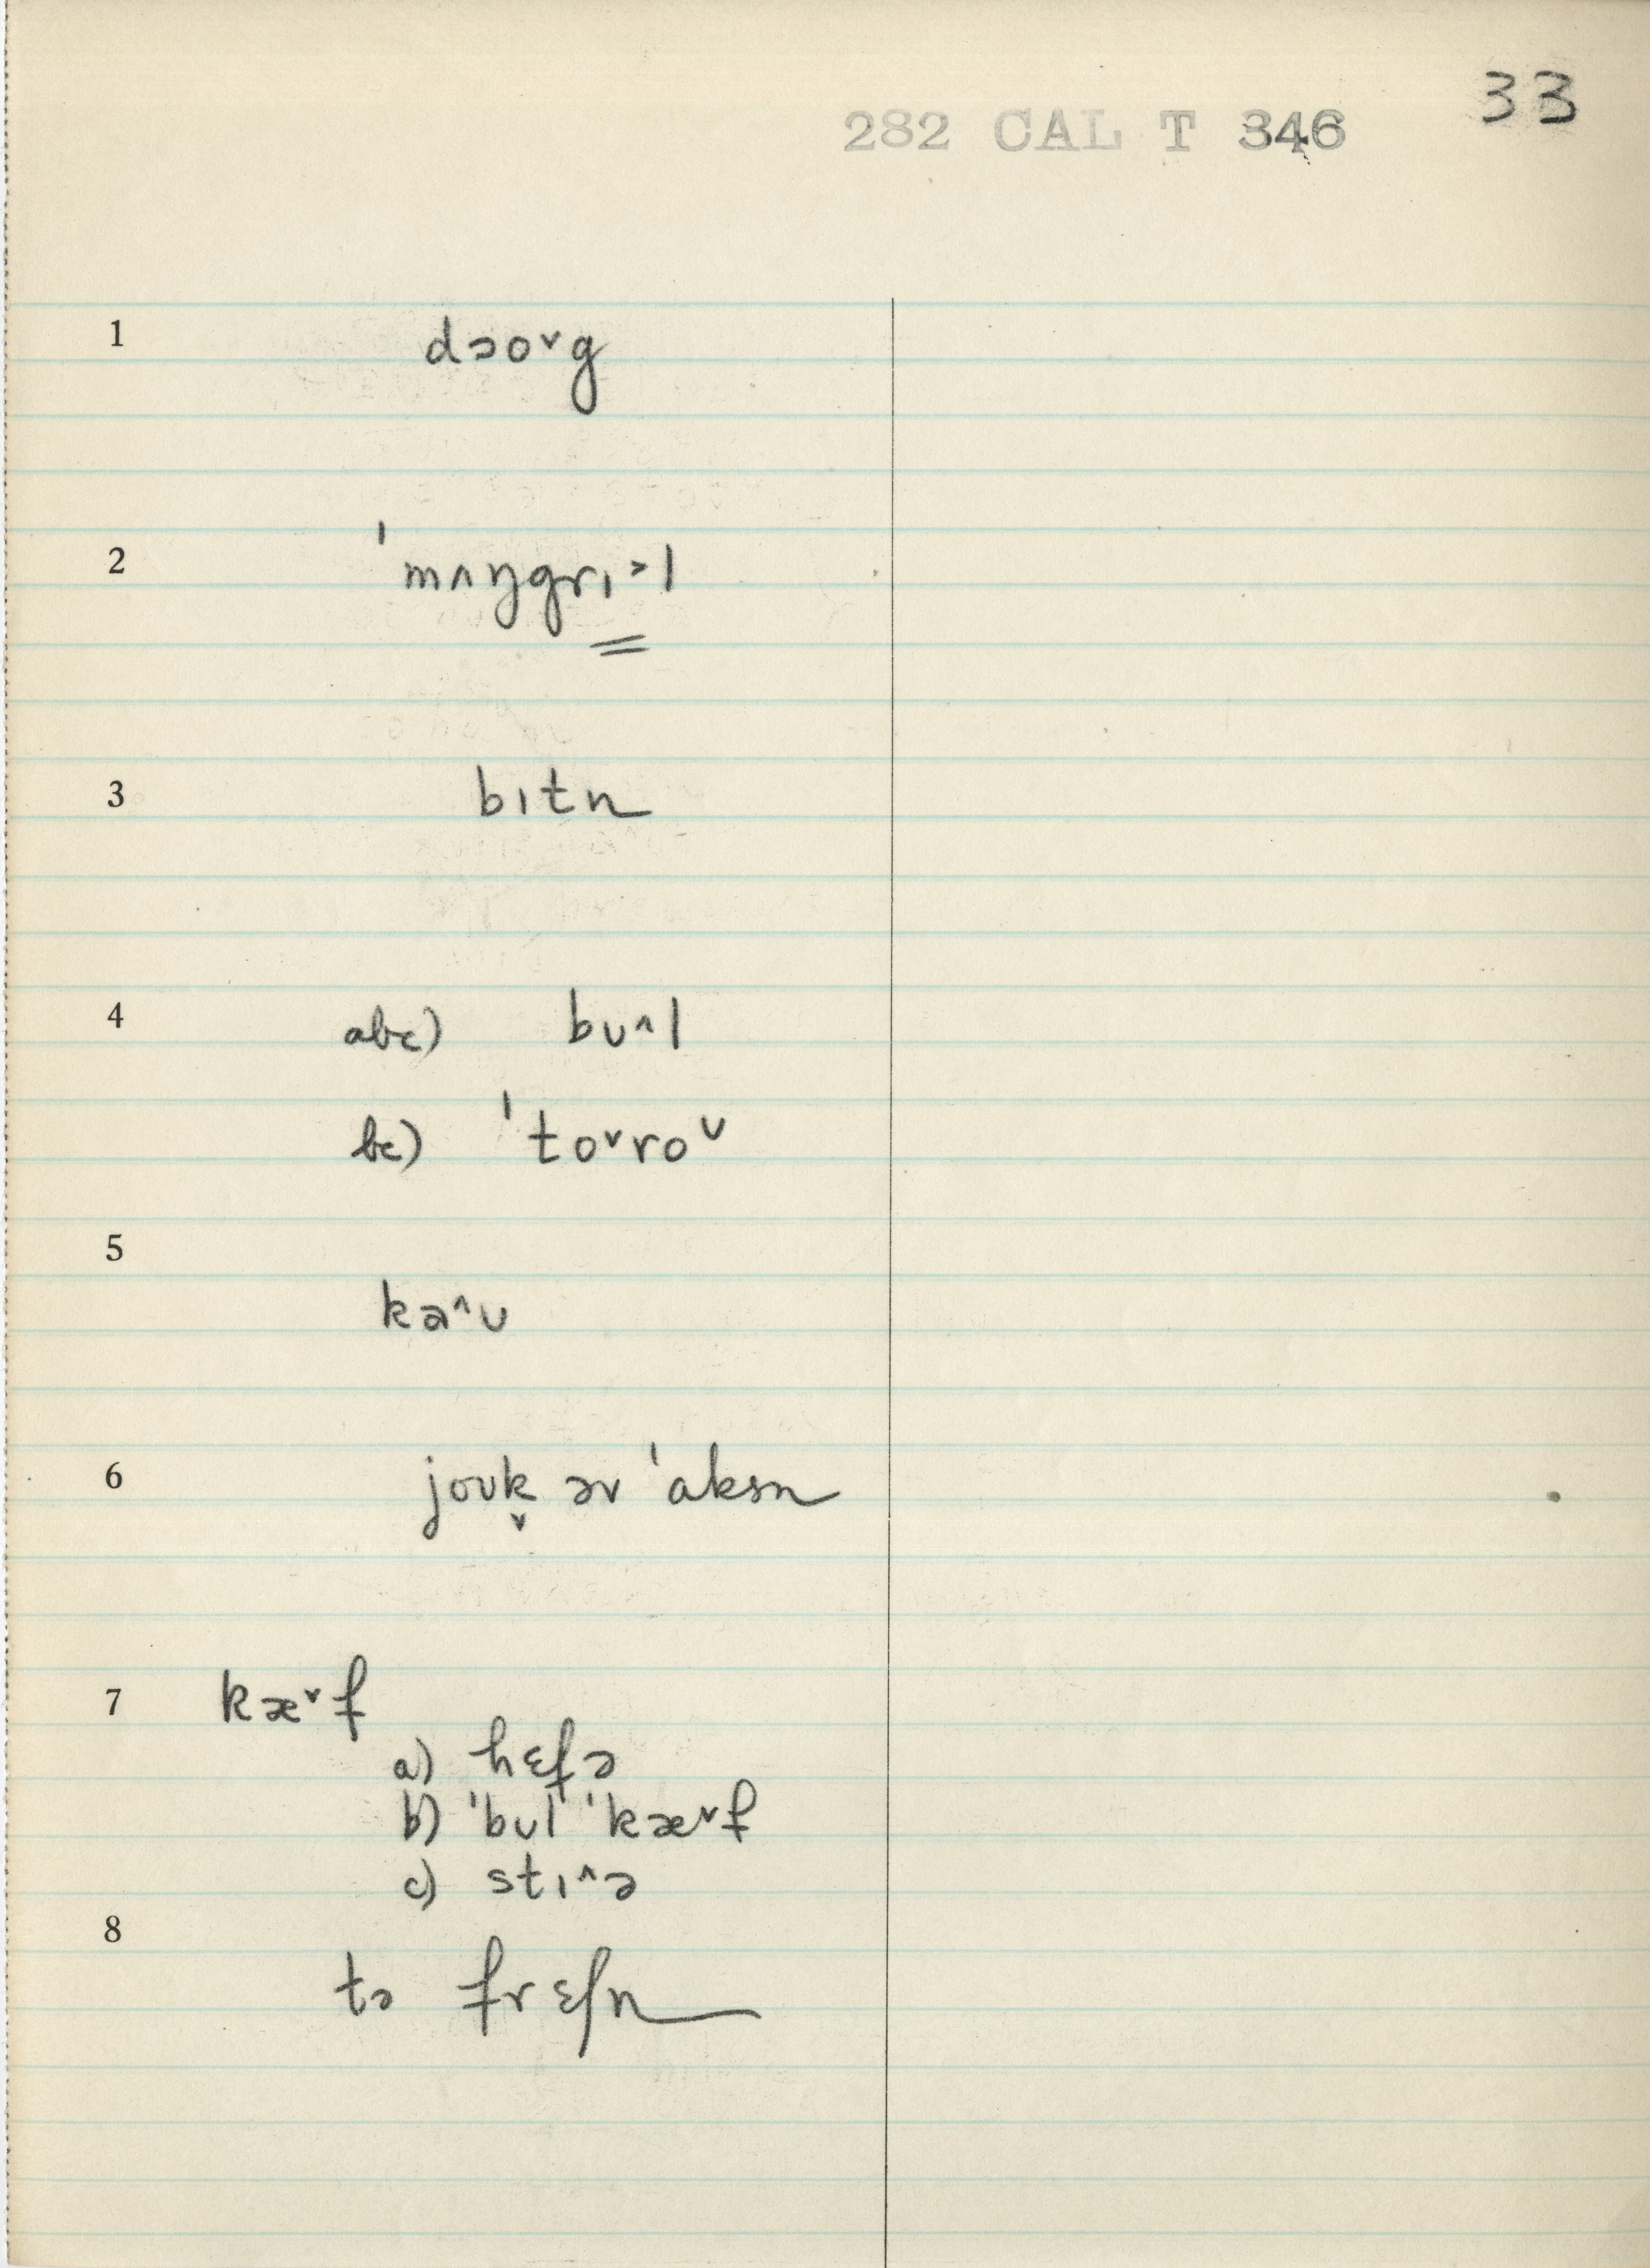 33
282 CAL T 346
1 dɔo˅g
2 ˈmʌŋgrɪ˃l
3 bɪtn
4 abc) bʊ˄l
bc) ˈto˅roᴜ
5 kə˄ʊ
6 joʊk̬ əv ˈaksn
7 kæ˅f
a) hɛfə
b) ˈbʊl ˈkæ˅f
c) stɪ˄ə
8 tə frɛʃn